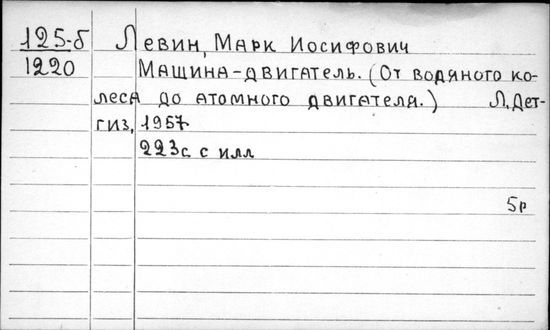 125-б Левин, Марк Иосифович
1220 Машина-двигатель. (От водяного ко-
леса до атомного двигателя.) Л, Дет-
гиз, 1957
223с. с илл
5р